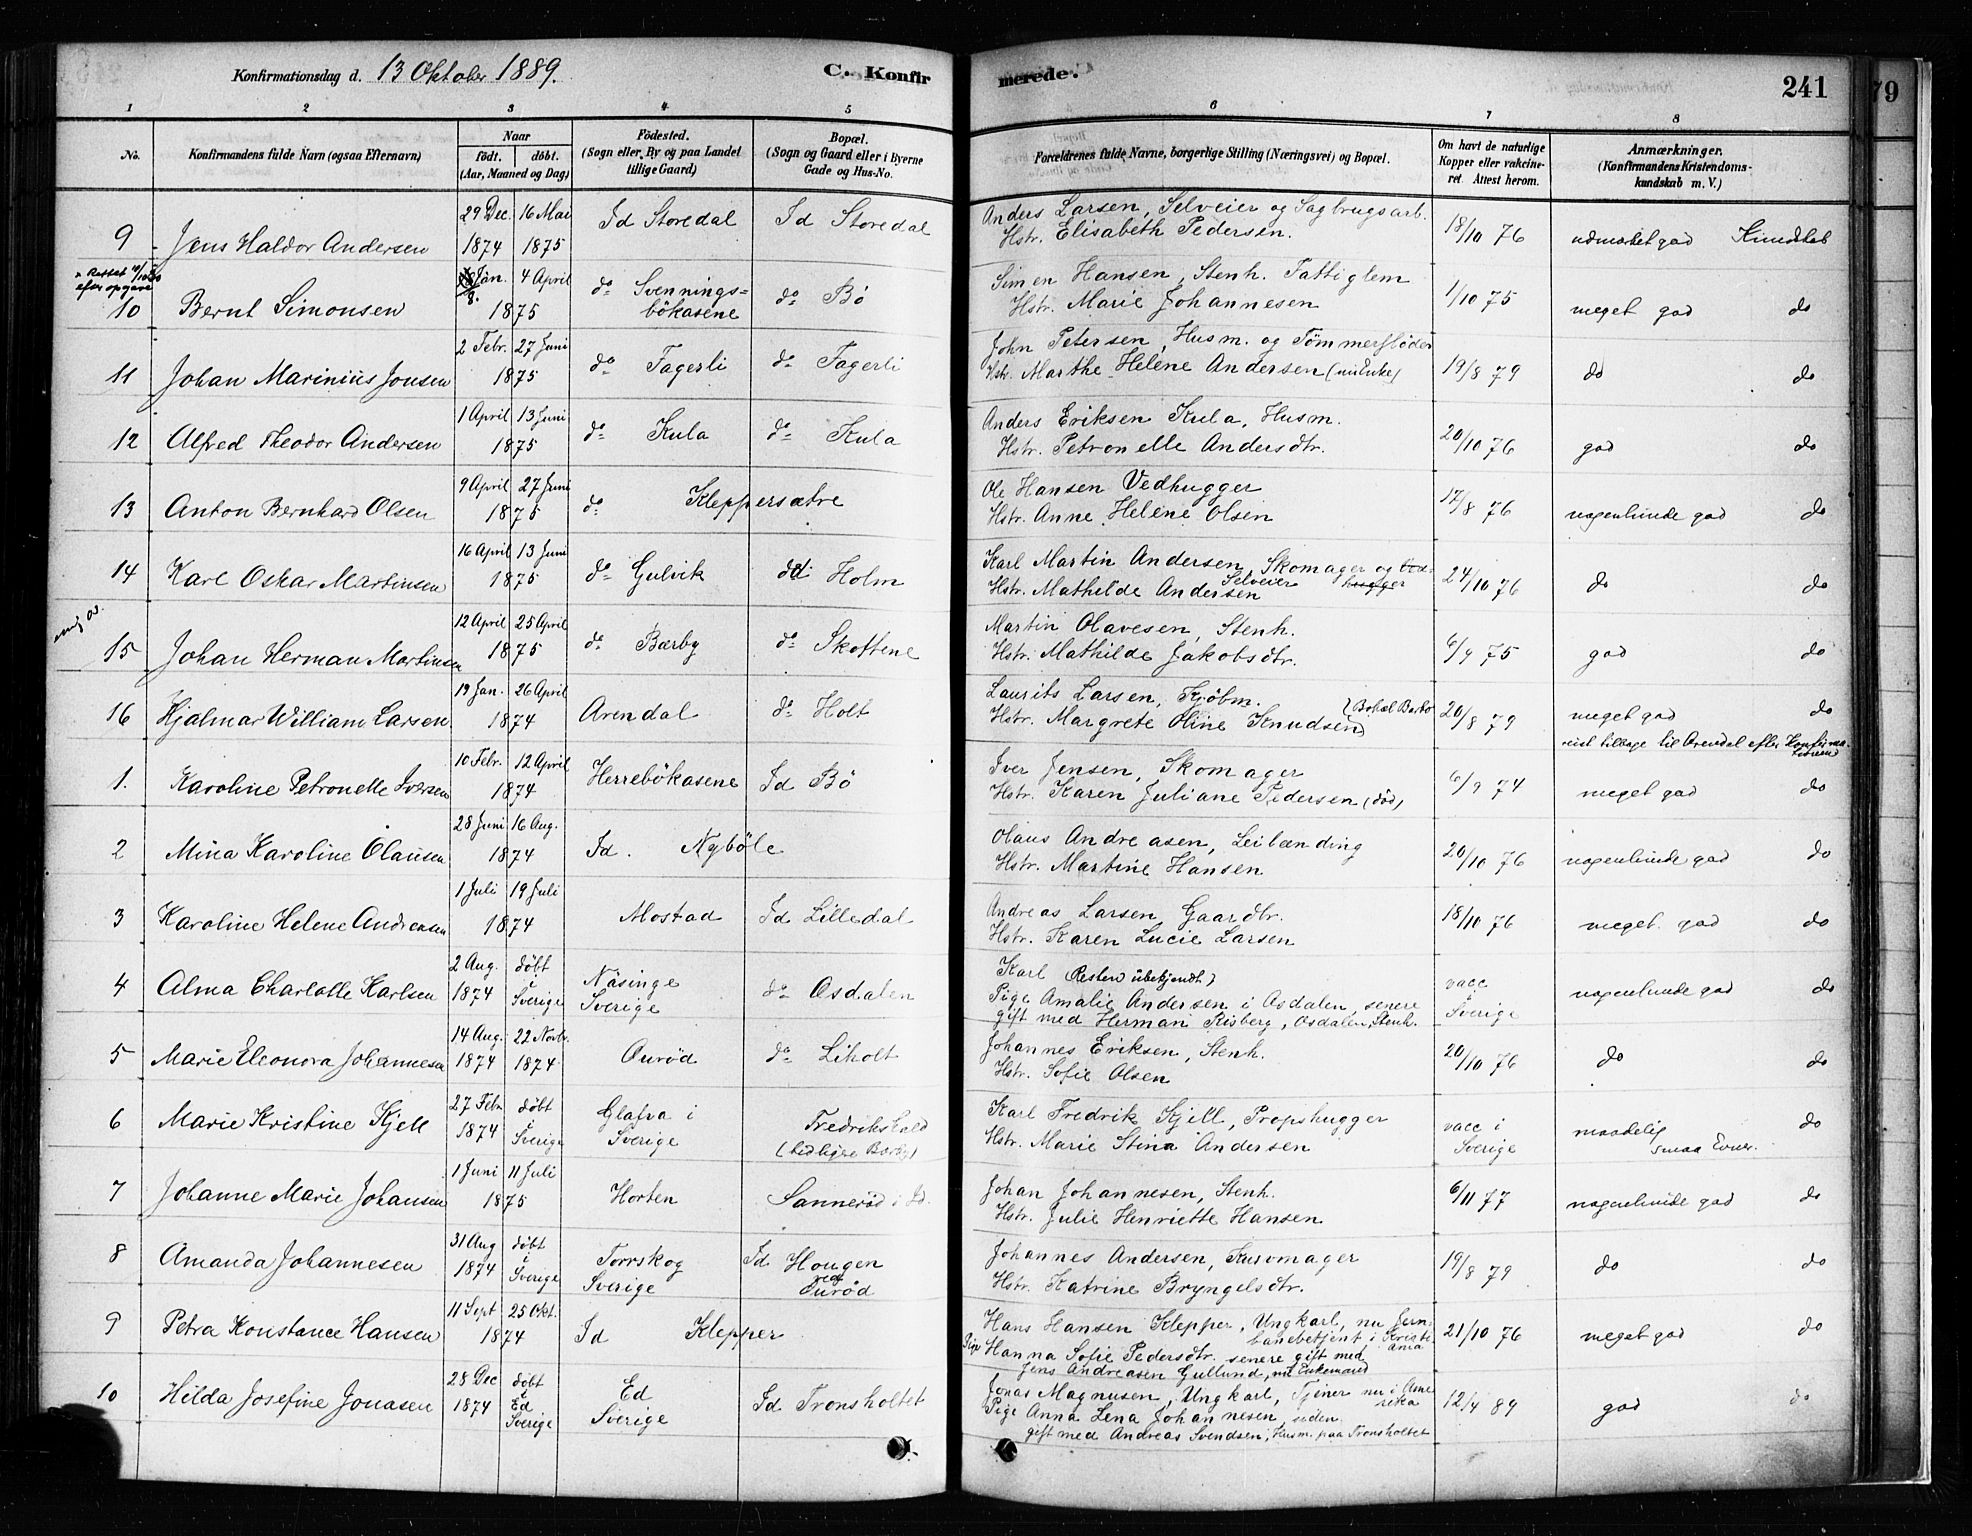 Konfirmationsdag d. 13 Oktober 1889.
C. Konfir
merede.
241
79
1 2 3 4 5 6 7 8
No.
Konfirmandens fulde Navn (ogsaa Efternavn)
Naar
födt. döbt.
(Aar, Maaned og Dag)
Födested.
(Sogn eller By og paa Landet
tillige Gaard)
Bopæl.
(Sogn og Gaard eller i Byerne
Gade og Hus-No.
Forældrenes fulde Navne, borgerlige Stilling (Næringsvei) og Bopæl.
Om havt de naturlige
Kopper eller vakcine-
ret. Attest herom.
Anmærkninger.
(Konfirmandens Kristendoms-
kundskab m. V.)
9 Jens Haldor Andersen
29 Dec. 1874
16 Mai 1875
Id Storedal
Id Storedal
Anders Larsen, Selveier og Sagbrugsarb.
Hstr. Elisabeth Pedersen.
18/10 76
udmærket god Kundskab
Rettet
efter opgave
10 Bernt Simonsen
Jan. 4 April
1875
do Svennings=
bökasene
do Bö
Simen Hansen, Stenh. Fattiglem
Hstr. Marie Johannesen
1/10 75
meget god do
11 Johan Marinius Jonsen
2 Febr. 27 Juni
1875
do Fagerli
do Fagerli
John Petersen, Husm. og Tömmerflöder
Hstr. Marthe Helene Andersen
19/8 79
do do
12 Alfred Theodor Andersen
1 April 13 Juni
1875
do Kula
do Kula
Anders Eriksen Kula, Husm.
Hstr. Petronelle Andersdtr.
20/10 76
god do
13 Anton Bernhard Olsen
9 April 27 Juni
1875
do Kleppersætre
Ole Hansen Vedhugger
Hstr. Anne Helene Olsen
17/8 76
nogenlunde god do
14 Karl Oskar Martinsen
16 April 13 Juni
1875
do Gulvik
do Holm
Karl Martin Andersen, Skomager og Ved-
Selveier hugger
Hstr. Mathilde Andersen
24/10 76
do do
15 Johan Herman Martinsen
12 April 25 April
1875
do Bærby
do Skottene
Martin Olavesen, Stenh.
Hstr. Mathilde Jakobsdtr.
6/9 75
god do
16 Hjalmar William Larsen
19 Jan. 26 April
1874
Arendal
do Holt
Laurits Larsen, Kjöbm.
Hstr. Margrete Oline Knudsen
20/8 79
meget god do
reist tilbage til Arendal efter Konfirma-
tionen
1. Karoline Petronelle Iversen
10 Febr. 12 April
1874
Herrebökasene
Id Bö
Iver Jensen, Skomager
Hstr. Karen Juliane Pedersen (död)
6/9 74
meget god do
2 Mina Karoline Olausen
28 Juni 16 Aug.
1874
Id. Nyböle
Olaus Andreasen, Leilænding
Hstr. Martine Hansen
20/10 76
nogenlunde god do
3 Karoline Helene Andreasen
1 Juli 19 Juli
1874
Mostad
Id Lilledal
Andreas Larsen, Gaardbr.
Hstr. Karen Lucie Larsen
18/10 76
meget god do
4 Alma Charlotte Karlsen
2 Aug. 1874
döbt i Sverige
Näsinge
Sverige
do Osdalen
Karl (Resten ubekjendt)
Pige Amalie Andersen i Osdalen, senere
gift med Herman Risberg, Osdalen, Stenh.
vacc
i
Sverige
nogenlunde god do
5 Marie Eleonora Johannesen
14 Aug. 1874
22 Novbr. 1874
Aaröd
do Liholt
Johannes Eriksen, Stenh.
Hstr. Sofie Olsen
20/10 76
do do
6 Marie Kristine Kjell
27 Febr. 1874
döbt i Sverige
Glafva i
Sverige
Fredrikshald
(tidligere Bærby)
Karl Fredrik Kjell, Propshugger
Hstr. Marie Stina Andersen
vacc i
Sverige
maadelig do
smaa Evner.
7 Johanne Marie Johansen
1 Juni 11 Juli
1875
Horten
Sanneröd i Id.
Johan Johannesen, Stenh.
Hstr. Julie Henriette Hansen
6/11 77
nogenlunde god do
8 Amanda Johannesen
31 Aug 1874
döbt i Sverige
Torrskog
Sverige
Id Hougen
ved
Auröd
Johannes Andersen, Kurvmager
Hstr. Katrine Bryngelsdtr.
19/8 79
do do
9 Petra Konstance Hansen
11 Sept 25 Okt.
1874
Id Klepper
Hans Hansen Klepper, Ungkarl, nu Jern-
banebetjent i Kristi-
ania
Pige Hanna Sofie Pedersdtr. senere gift med
Jens Andreasen Gullund, nu Enkemand
21/10 76
meget god do
10 Hilda Josefine Jonasen
28 Dec 1874
döbt i Ed Sverige
Ed
Sverige
Id Tronsholtet
Jonas Magnusen, Ungkarl, Tjener nu i Ame
rika
Pige Anna Lena Johannesen, siden
gift med Andreas Svendsen, Husm. paa Tronsholtet
12/4 89
god do